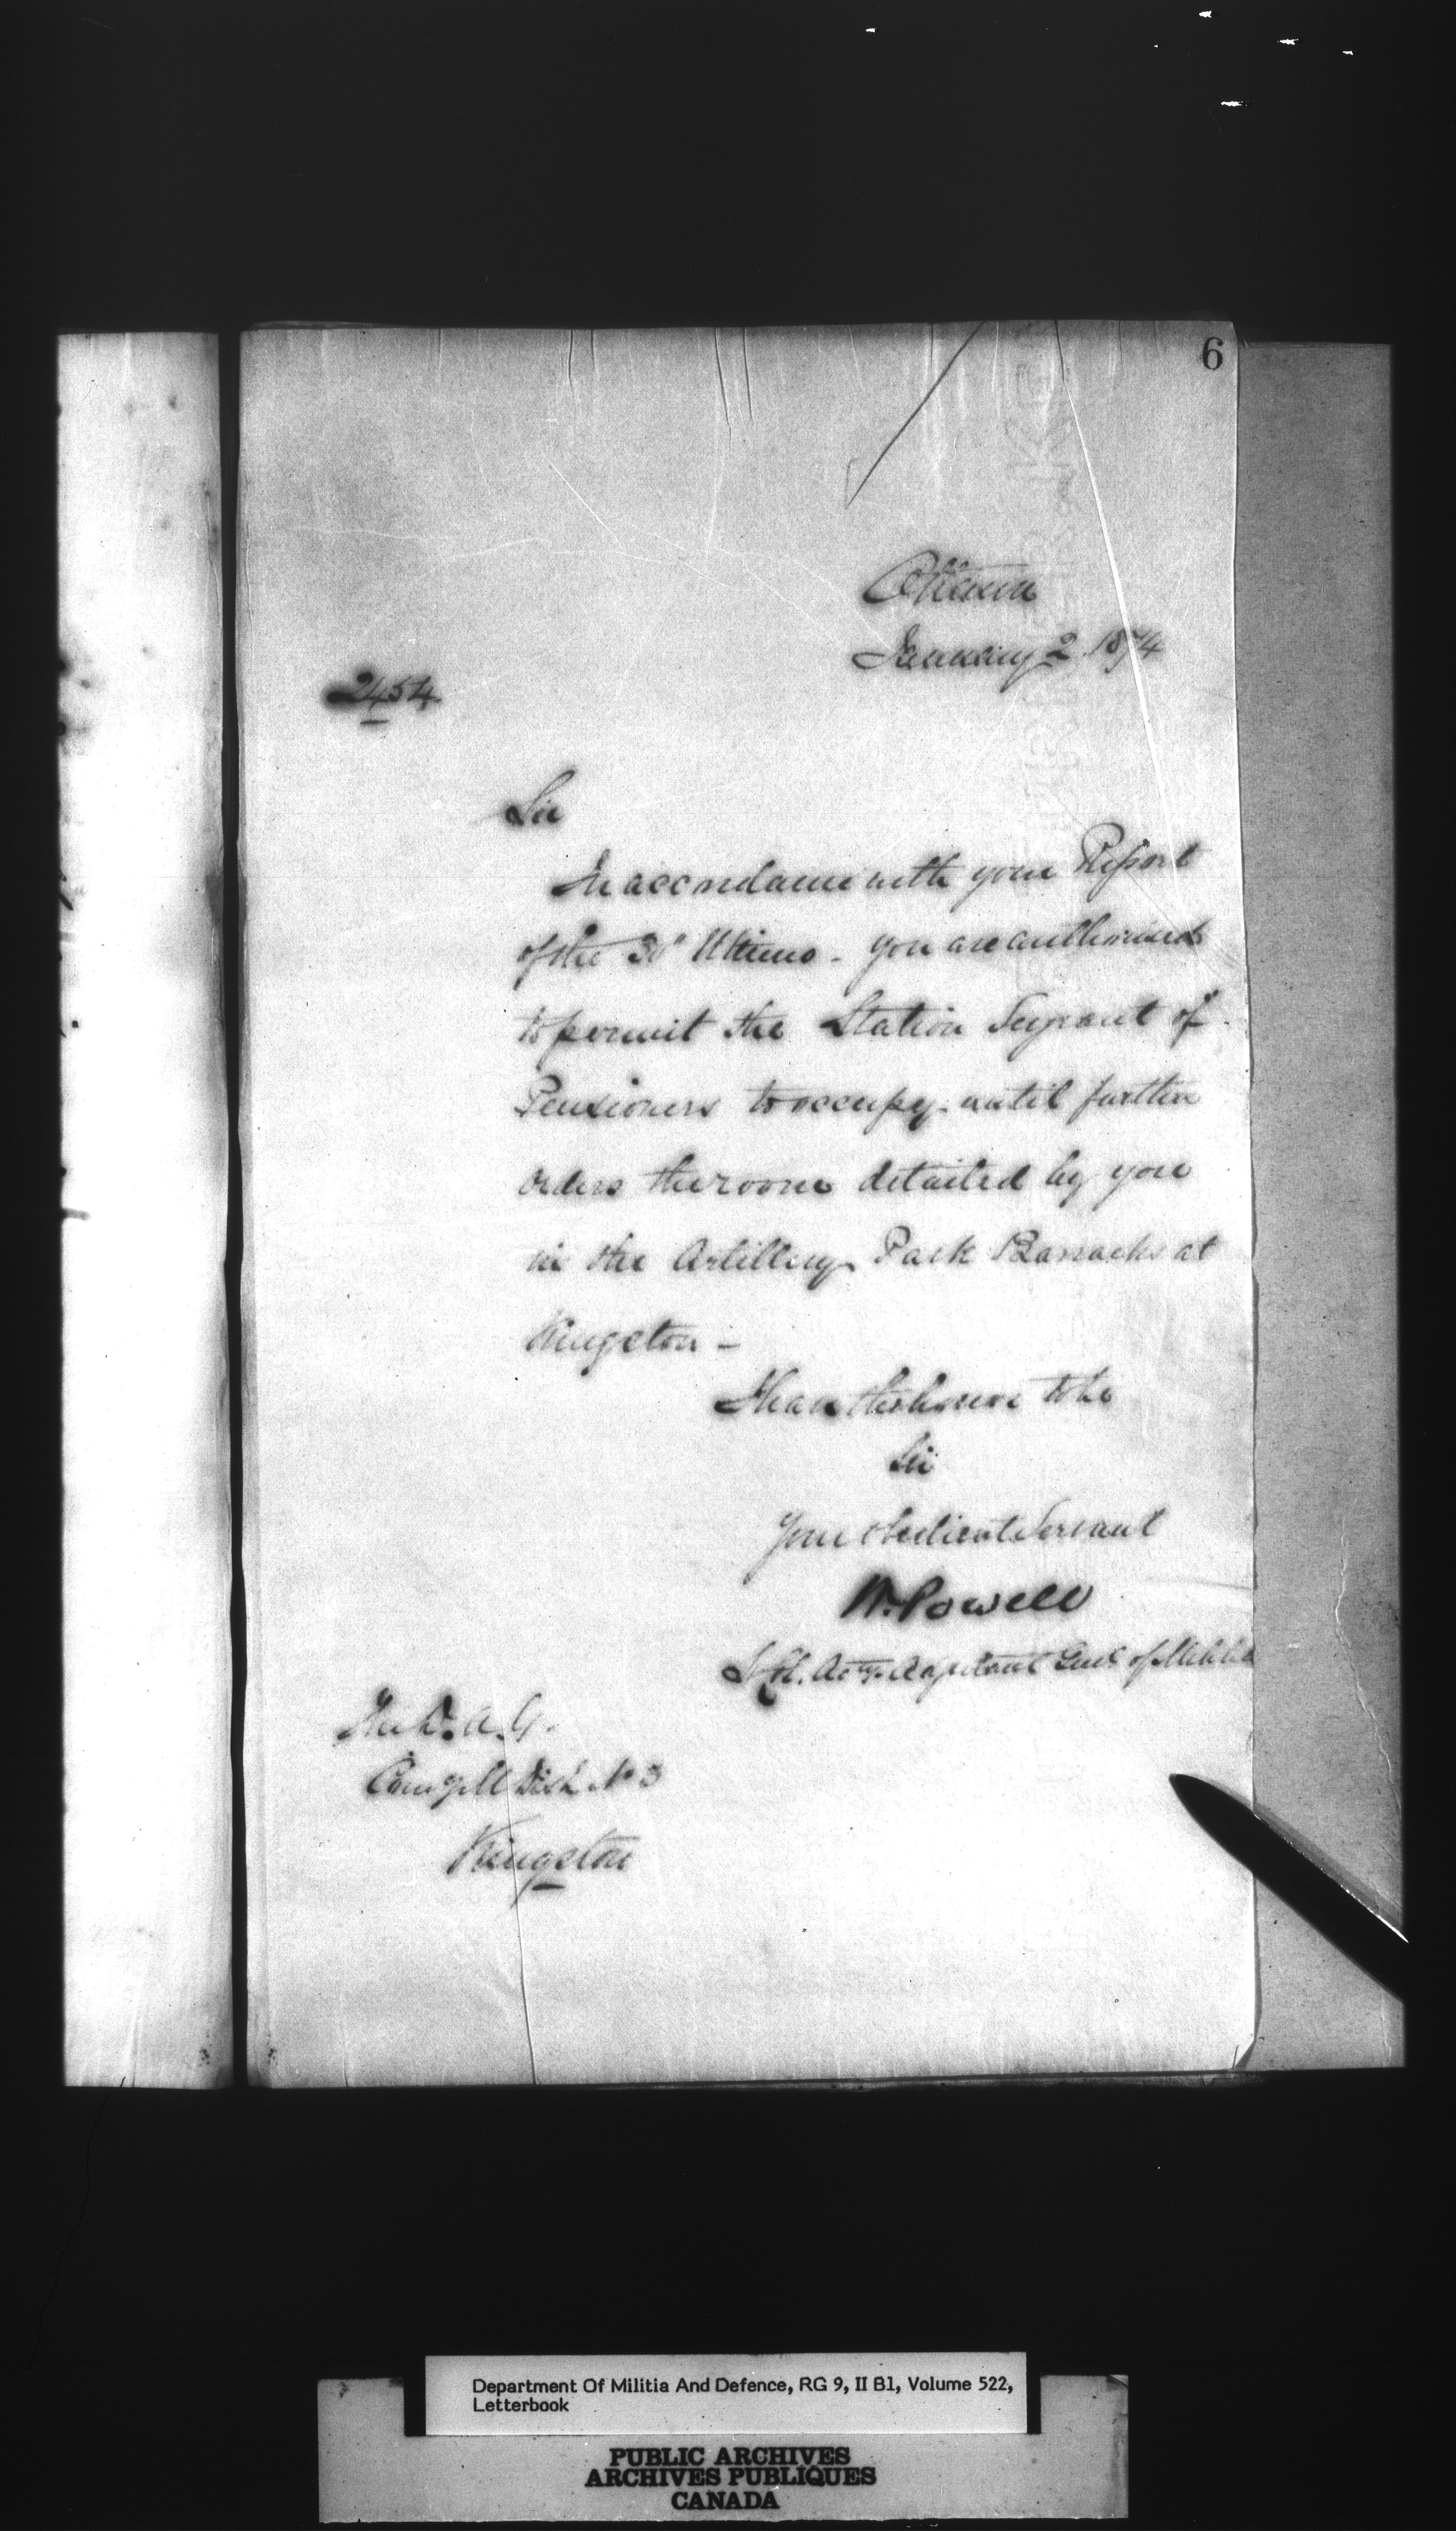 6
Ottawa
January 2 1874
2454
Sir
In accordance with your Report
of the 30" Ultimo - you are authorised
to permit the Station Serjeant of
Pensioners to occupy until further
orders the room detailed by you
in the Artillery Park Barracks at
Kingston -
I have the honor to be
Sir
Your obedient Servant
W. Powell
Lt Col. Actg. Adjutant Genl of Militia
The D. A. G.
Comg M Dist No 3
Kingston
Department Of Militia And Defence, RG 9, II B1, Volume 522,
Letterbook
PUBLIC ARCHIVES
ARCHIVES PUBLIQUES
CANADA